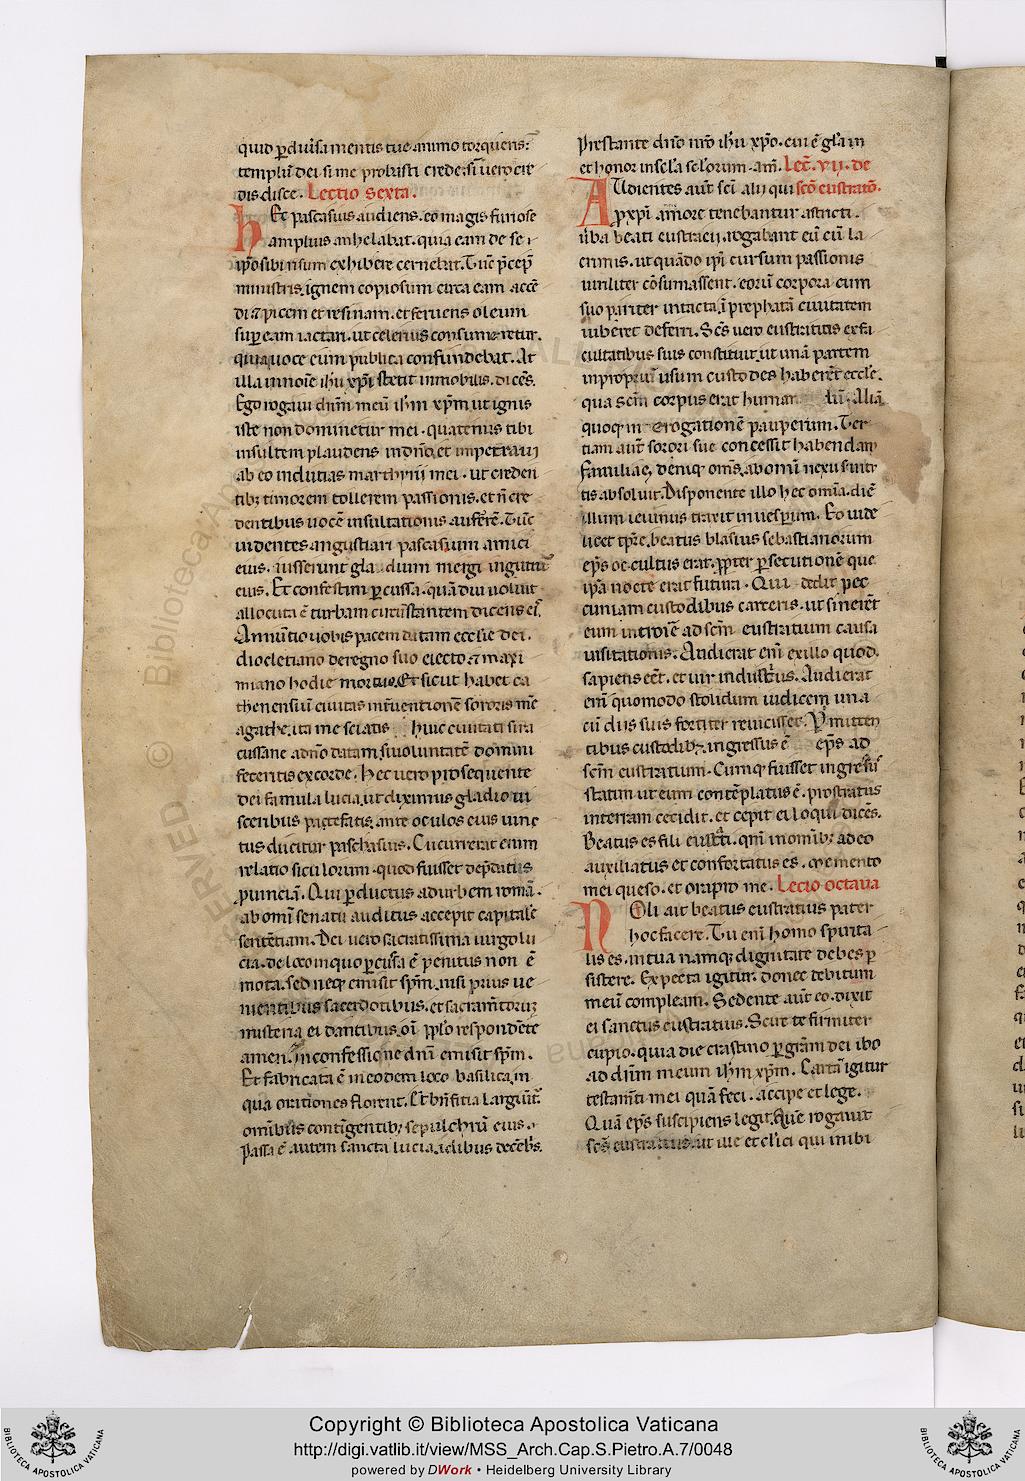 quid p̄duīsi mentis tue animo torquens.
templū dei si me probasti crede. sī uero cre
dis. disce. Lectio sexta.
hEc pascasius audiens. eo magis furiose
amplius anhelabat. quia eam de se i
ip̄o sibi risum exhibere cernebat. Tūc p̄cep̄
ministris. ignem copiosum circa eam accē
di. ⁊ picem et resinam. et feruens oleum
sup̄ eam iactari. ut celerius consumeretur.
quia uoce eum publica confundebat. At
illa in noīe ihū xp̄i stetit inmobilis. dicēs.
Ego rogaui dn̄m meū ihm̄ xp̄m ut ignis
iste non dominetur mei. quatenus tibi
insultem plaudens in dn̄o. et impetraui
ab eo indutias marthyrii mei. ut creden
tib; timorem tollerem passionis. et n̄ cre
dentibus uocē insultationis auferrē. Tūc
uidentes angustiari pascasium amici
eius. iusserunt gladium mergi in gutture
eius. Et confestim p̄cussa. quādiu uoluit
allocuta ē turbam circūstantem dicens eī.
Annūtio uobis pacem datam ecclesie dei.
diocletiano de regno suo eiecto. ⁊ maxi
miano hodie mortuo. Et sicut habet ca
thenensiū ciuitas int̄uentionē sororis mē
agathe. ita me sciatis huic ciuitati sira
cussane a dn̄o datam. si uoluntatē domini
feceritis ex corde. Hec uero prosequente
dei famula lucia. ut diximus gladio ui
sceribus patefatis. ante oculos eius uinc
tus ducitur paschasius. Cucurrerat enim
relatio siculorum. quod fuisset dep̄datus
puincīā. Qui p̄ductus ad urbem romā.
ab omī senatu auditus accepit capitale
sentētiam. Dei uero sacratissima uirgo lu
cia. de loco in quo p̄cussa ē penitus non ē
mota. sed neq; emisit sp̄m. nisi prius ue
nientibus sacerdotibus. et sacram̄torum
misteria ei dantibus. oī pp̄lo respondēte
amen. in confessione dn̄i emisit sp̄m.
Et fabricata ē in eodem loco basilica. in
qua oritiones florent. Et bn̄fitia largiūt̄.
omībus contigentib; sepulchrū eius.
Passa ē autem sancta lucia. idibus decēb̄s.
Prestante dn̄o nr̄o ihū xp̄o. cui ē gl̄a in
et honor in sc̄la sc̄lorum. am̄. Lec̄. vij. de
AUdientes aut̄ sc̄i alii qui sc̄o eustratio.
p xp̄i amore tenebantur astricti.
ūba beati eustracii. rogabant eū cū la
crimis. ut quādo ip̄i cursum passionis
uiriliter cōsumassent. eorū corpora cum
suo pariter intacta. ī prephatā ciuitatem
iuberet deferri. Sc̄s uero eustratius ex fa
cultatibus suis constituit. ut unā partem
in propriū usum custodes haberēt eccl̄e.
qua sc̄m corpus erat human Aliā
quoq; in erogationē pauperum. Ter
tiam aut̄ sorori sue concessit habendam
Familiaȩ deniq; om̄s. ab omī nexu seruitu
tis absoluit. Disponente illo hec omīa. diē
illum ieiunus traxit in uesp̄um. Eo uide
licet tp̄re. beatus blasius sebastianorum
ep̄s occultus erat. pp̄ter p̄secutionē que
ip̄a nocte erat futura. Qui dedit pec
cuniam custodibus carceris. ut sinerēt
eum introire ad sc̄m eustratium causa
uisitationis. Audierat enī ex illo quod.
sapiens eēt. et uir industrius. Audierat
enī quomodo stolidum iudicem una
cū diis suis fortiter reuicisset. P̄mitten
tibus custodib;. ingressus ē ep̄s ad
sc̄m eustratium. Cumq; fuisset ingressus
statim ut eum contēplatus ē. prostratus
in terram cecidit. et cepit ei loqui dicēs.
Beatus es fili eustrati. qm̄ in omīb; a deo
auxiliatus et confortatus es. memento
mei queso. et ora pro me. Lecio octaua
NOli ait beatus eustratius pater
hoc facere. Tu enī homo spirita
lis es. in tua namq; dignitate debes p
sistere. Expecta igitur. donec debitum
meū compleam. Sedente aut̄ eo. dixit
ei sanctus eustratius. Scire te firmiter
cupio. quia die crastino p̄ gr̄am dei ibo
ad dn̄m meum ihm̄ xp̄m. Cartā igitur
testam̄ti mei quā feci. accipe et lege.
Quā ep̄s suscipiens legit. Quē rogauit
sc̄s eustratius. ut ille et cl̄ici qui inibi
Copyright © Biblioteca Apostolica Vaticana
http://digi.vatlib.it/view/MSS_Arch.Cap.S.Pietro.A.7/0048
powered by DWork • Heidelberg University Library
BIBLIOTECA APOSTOLICA VATICANA
BIBLIOTECA APOSTOLICA VATICANA